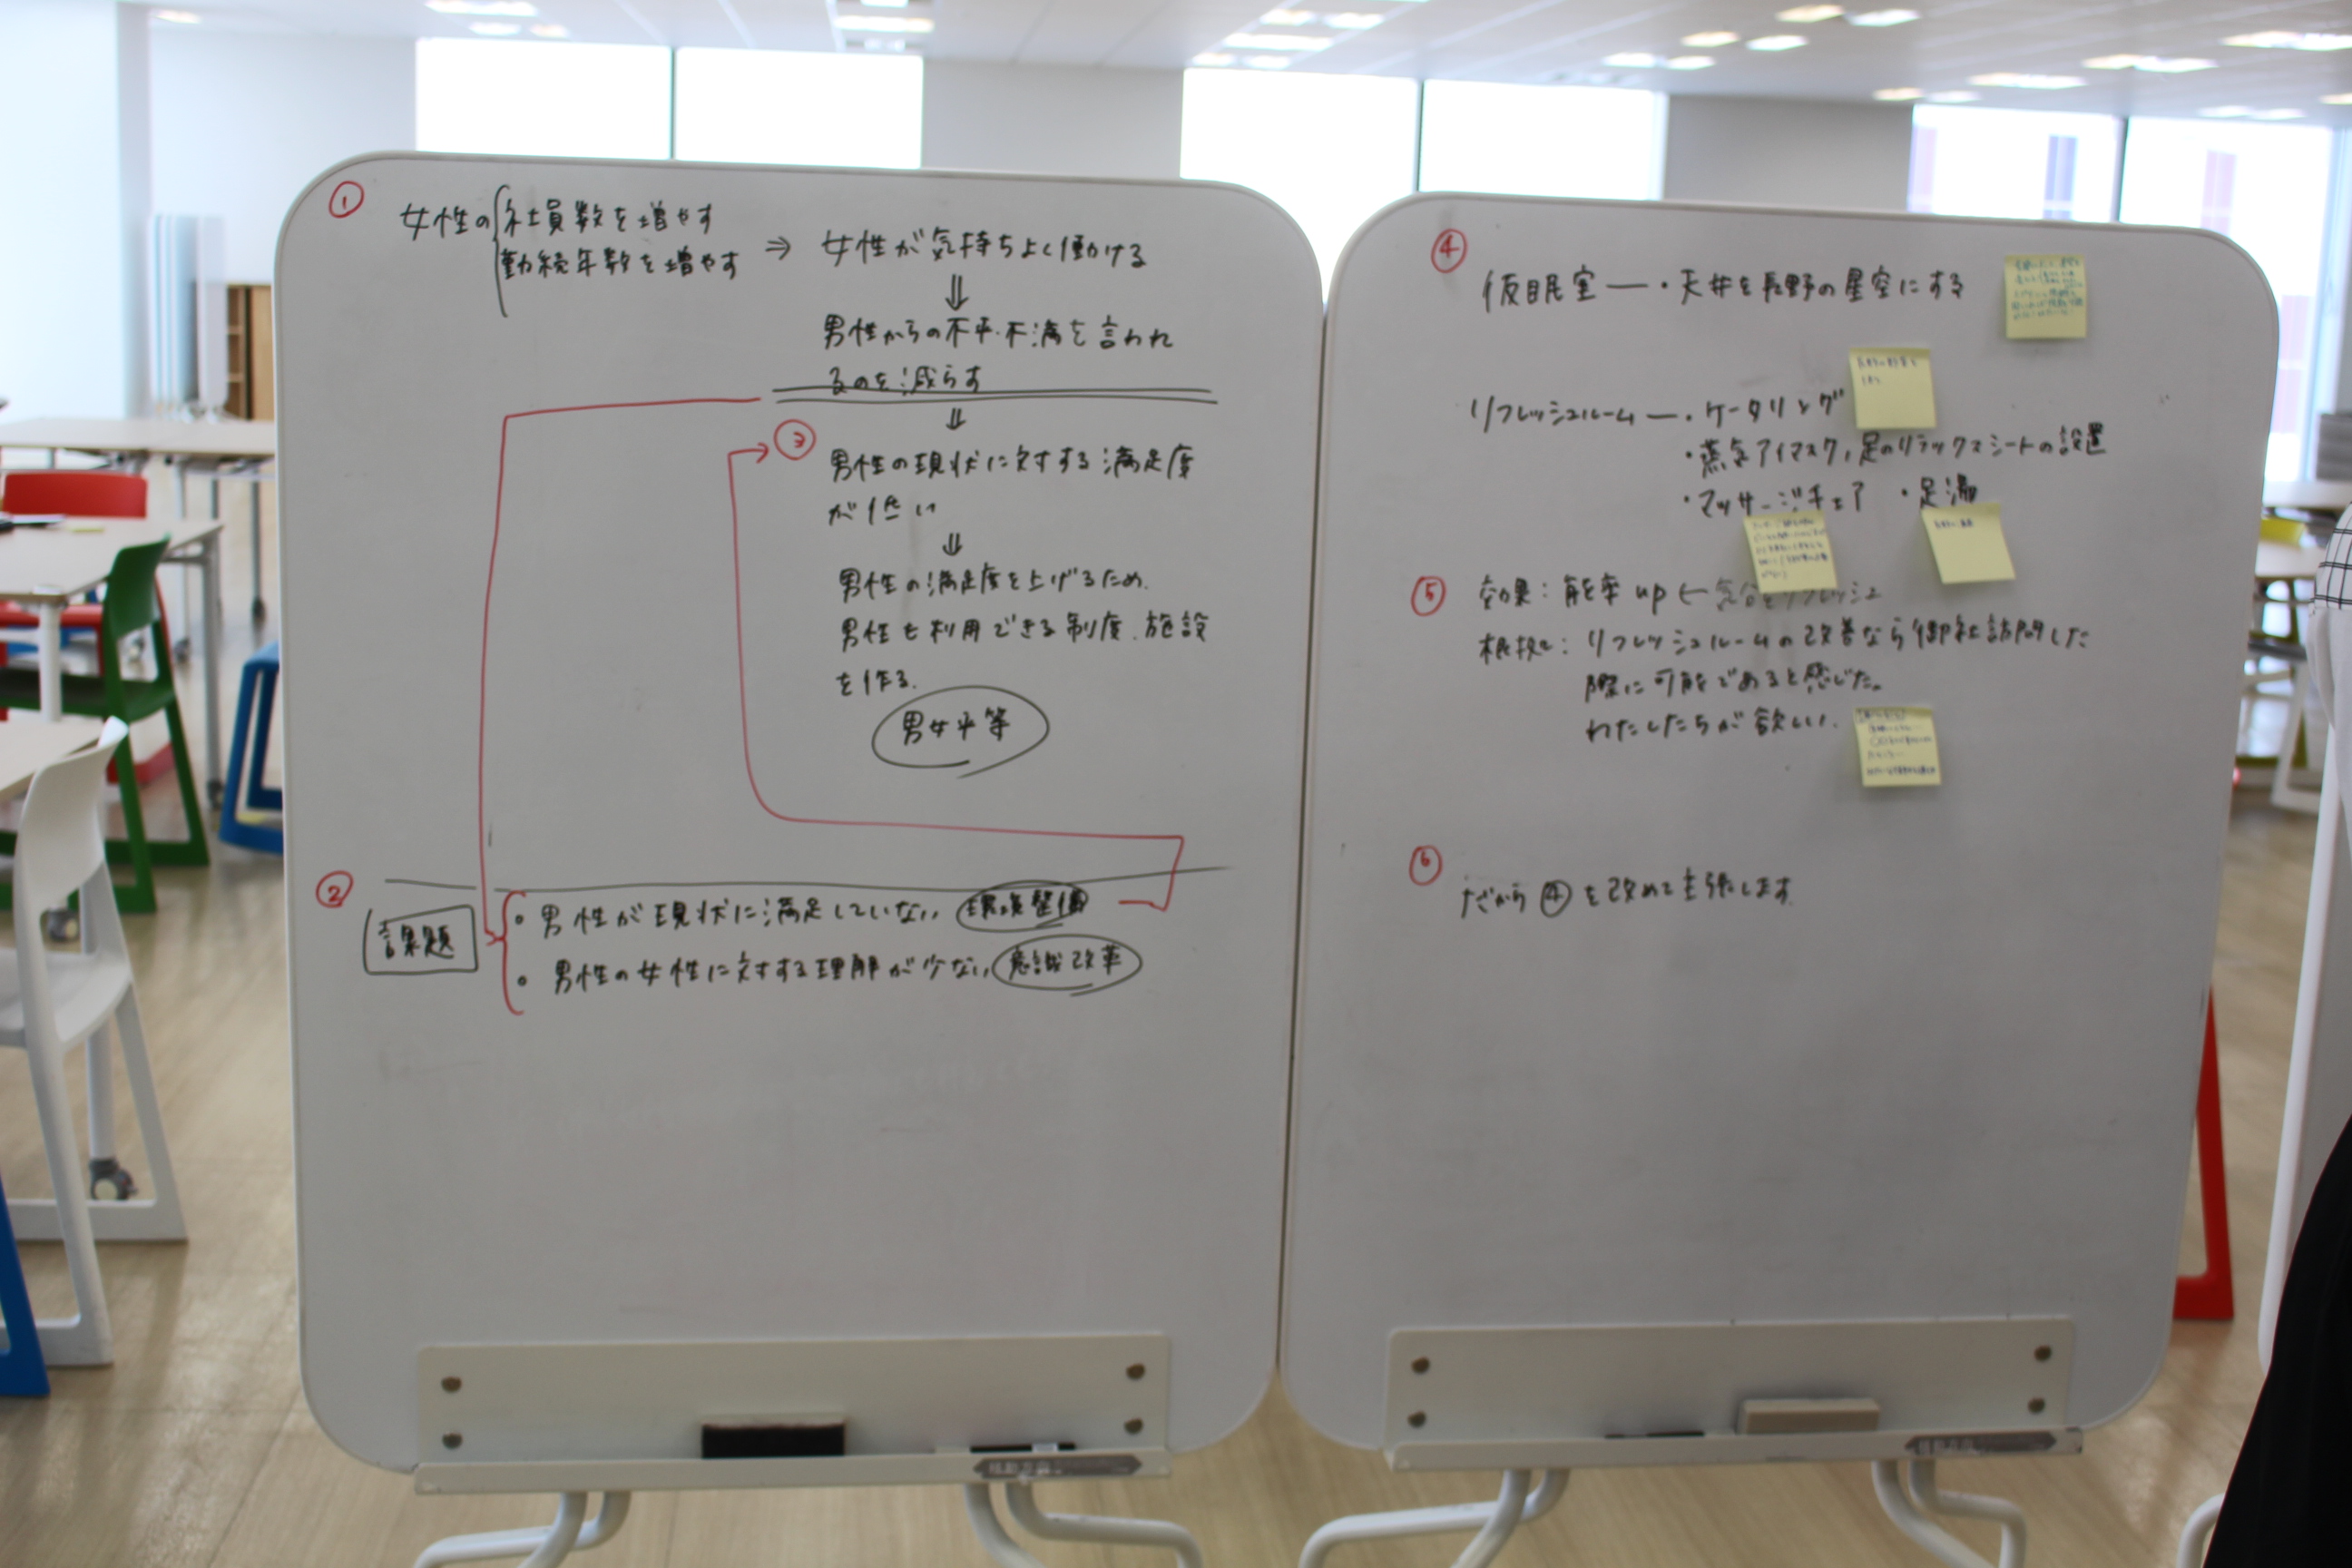 ①
女性の 社員数を増やす
勤続年数を増やす
⇒ 女性が気持ちよく働ける
⇓
男性からの不平・不満を言われ
るのを減らす
⇓
③
男性の現状に対する満足度
が低い
⇓
男性の満足度を上げるため、
男性も利用できる制度、施設
を作る。
男女平等
②
課題
• 男性が現状に満足していない 環境整備
• 男性の女性に対する理解が少ない 意識改革
④
仮眠室 ー ・天井を長野の星空にする
リフレッシュルーム ー ・ケータリング
・蒸気アイマスク, 足のリラックスシートの設置
・マッサージチェア ・足湯
⑤
効果: 能率 up ← 気分をリフレッシュ
根拠: リフレッシュルームの改善なら御社訪問した
際に可能であると感じた。
わたしたちが欲しい.
⑥
だから ④ を改めて主張します.